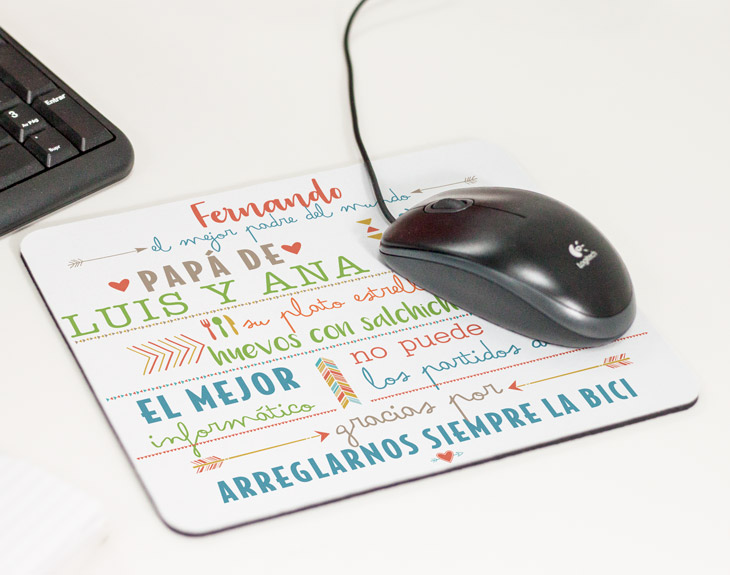 Fernando
el mejor padre del mundo
PAPÁ DE
LUIS Y ANA
su plato estrella
huevos con salchich
EL MEJOR
informático
no puede
los partidos d
gracias por
ARREGLARNOS SIEMPRE LA BICI
Logitech
Entrar
3
Av Pág
Supr